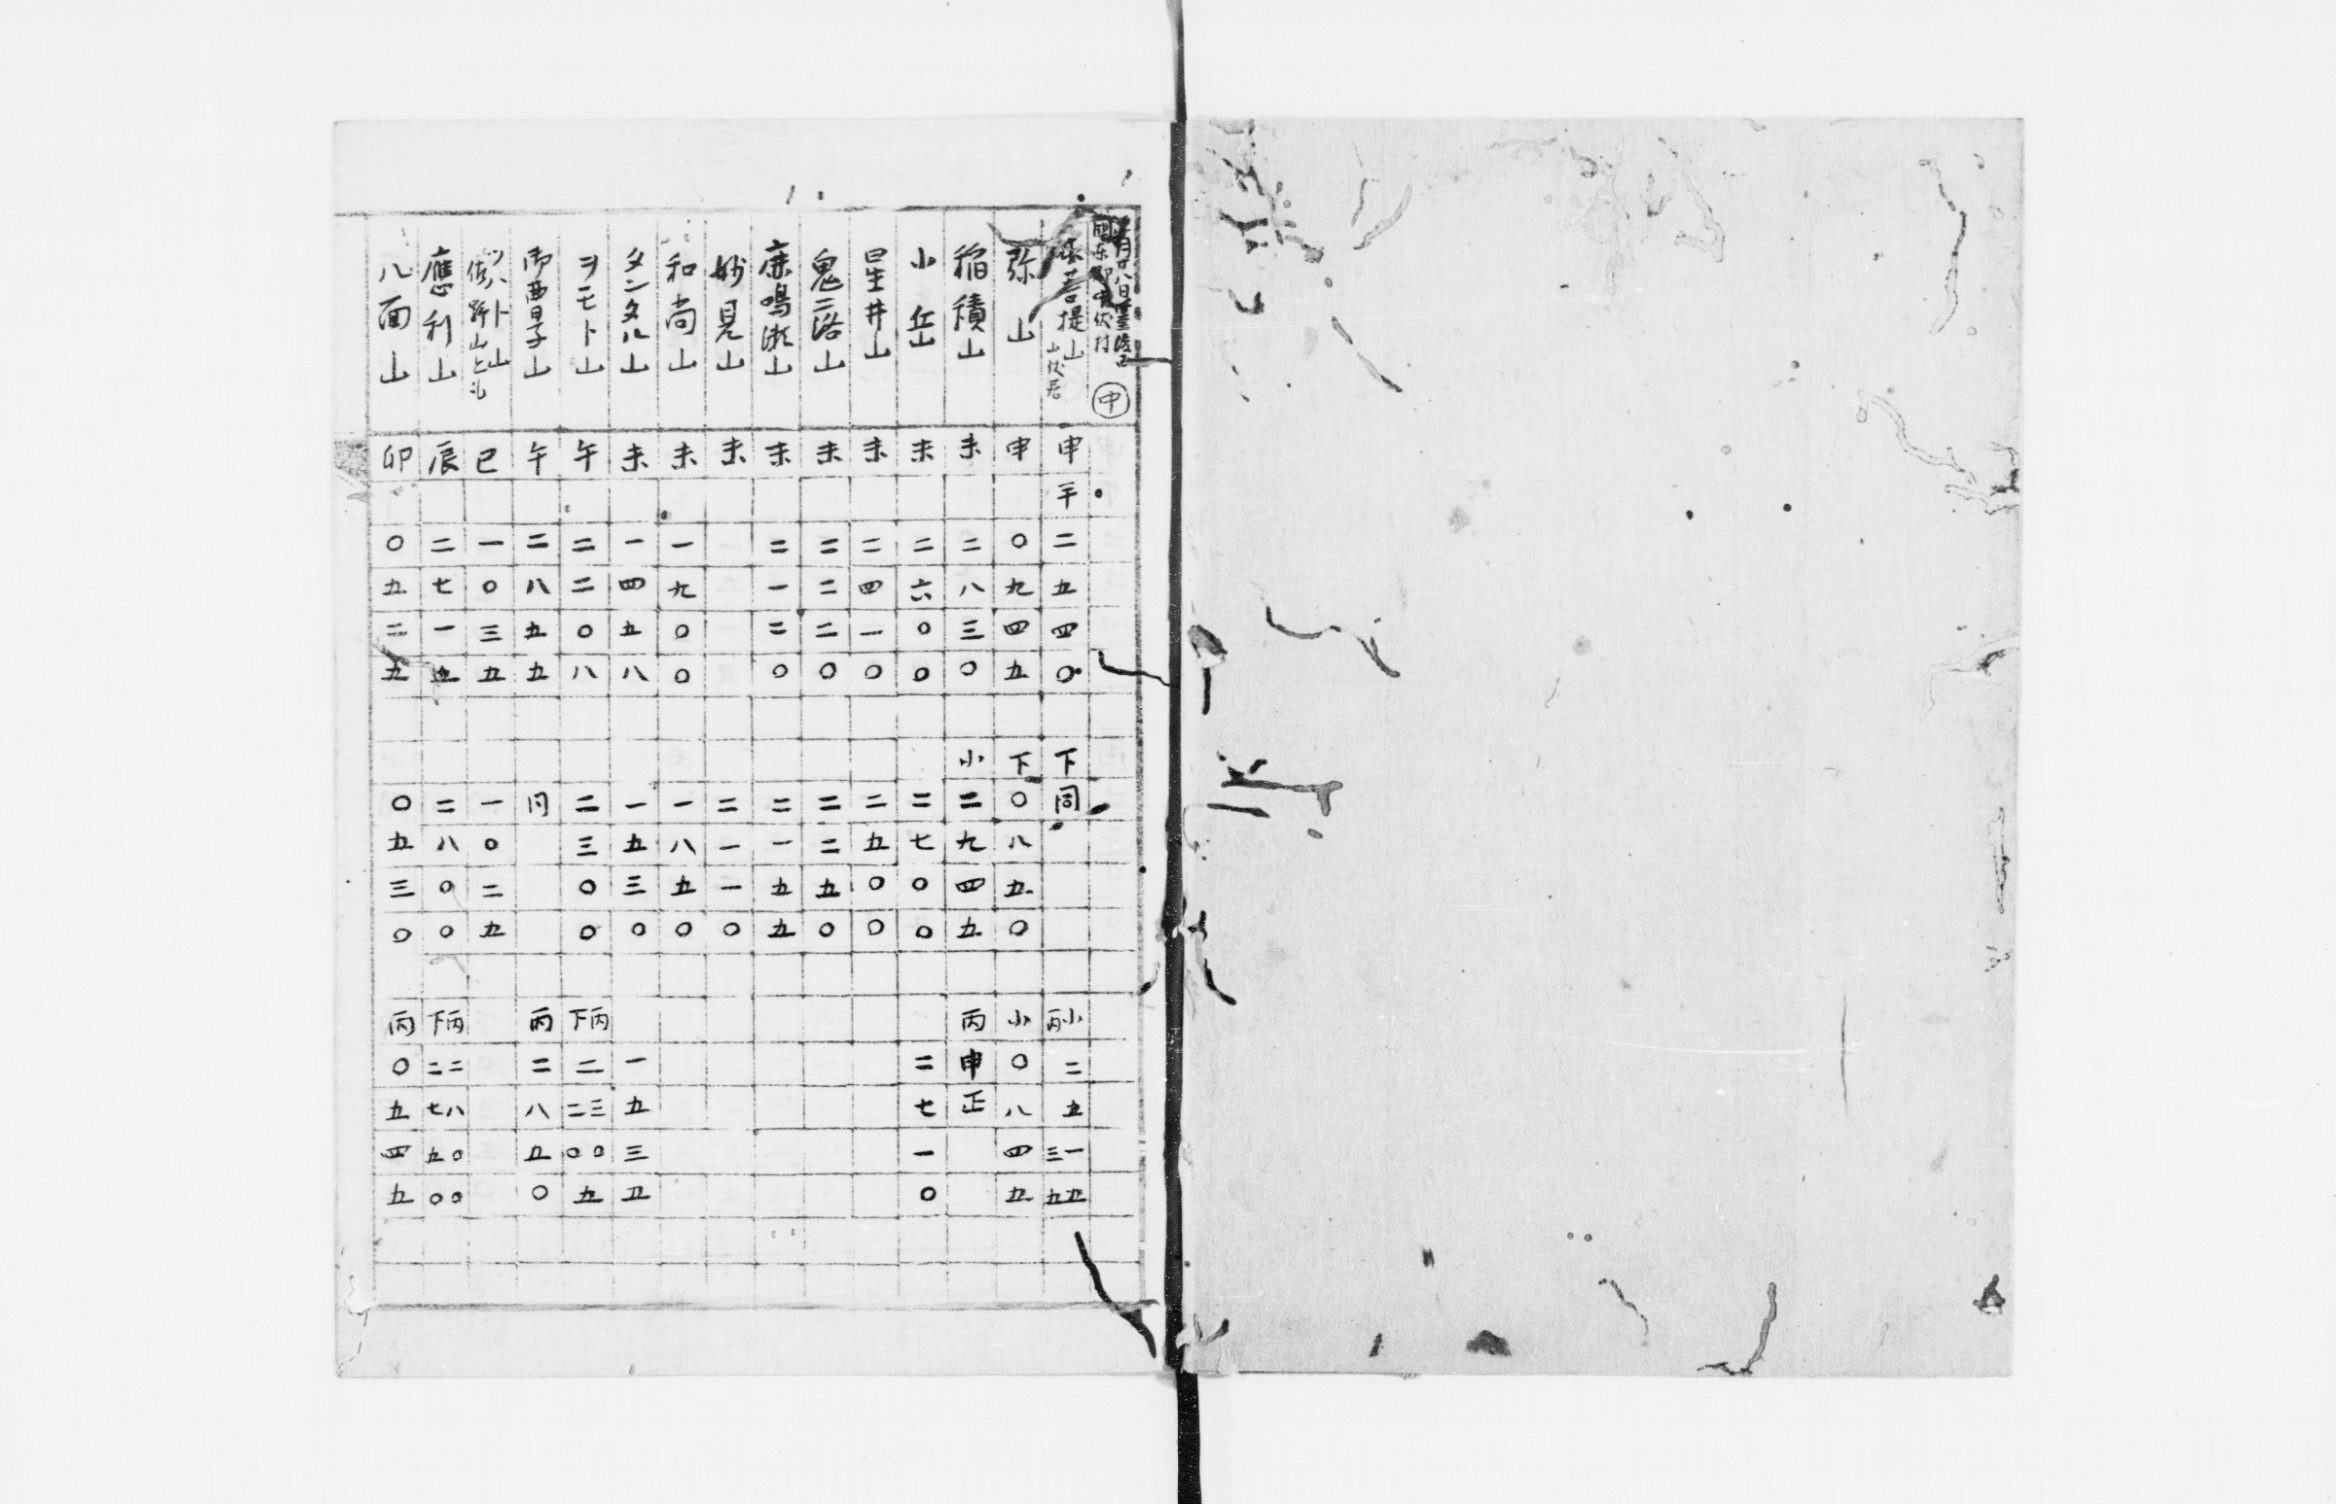 中
菩提山 申 半 二五四〇 下同 小丙 二 五 三一 五五
弥山 申 〇九四五 下〇八五〇 小〇八四五
稲積山 未 二八三〇 小二九四五 丙申正
小岳 未 二六〇〇 二七〇〇 二七一〇
星井山 未 二四一〇 二五〇〇
鬼落山 未 二二二〇 二二五〇
鹿鳴山 未 二一二〇 二一五五
妙見山 未 二一一〇
和尚山 未 一九〇〇 一八五〇
タンタル山 未 一四五八 一五三〇 一五三五
ヲモト山 午 二二〇八 二三〇〇 下丙 二 二三 〇〇 五
山 午 二八五五 同 丙二八五〇
ツハト山 巳 一〇三五 一〇二五
應利山 辰 二七一五 二八〇〇 下丙 二二 七八 五〇 〇〇
八面山 卯 〇五二五 〇五三〇 丙〇五四五